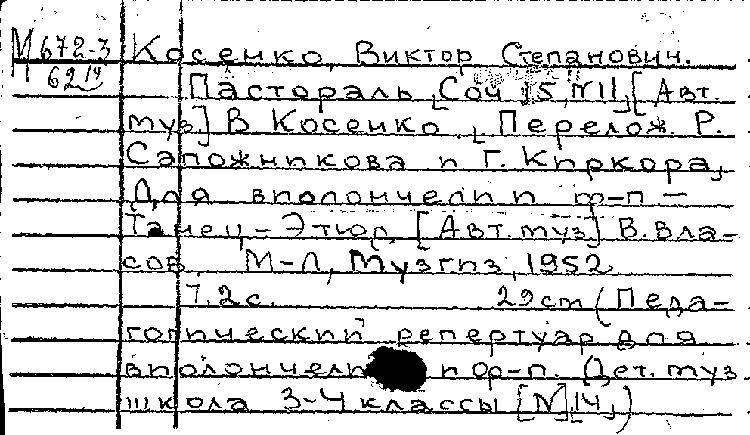 М 672-3
62 14
Косенко, Виктор Степанович.
Пастораль, Соч 15, №11, [Авт.
муз] В Косенко. Перелож. Р.
Сапожникова и Г. Киркора,
Для виолончели и ф-п —
Танец-Этюд, [Авт. муз] В. Вла-
сов. М-Л, Музгиз, 1952
7. 2 с. 29 cm (Педа-
гогический репертуар для
виолончели и фр-п. Дет. муз
школа 3-4 классы [№ 14,)